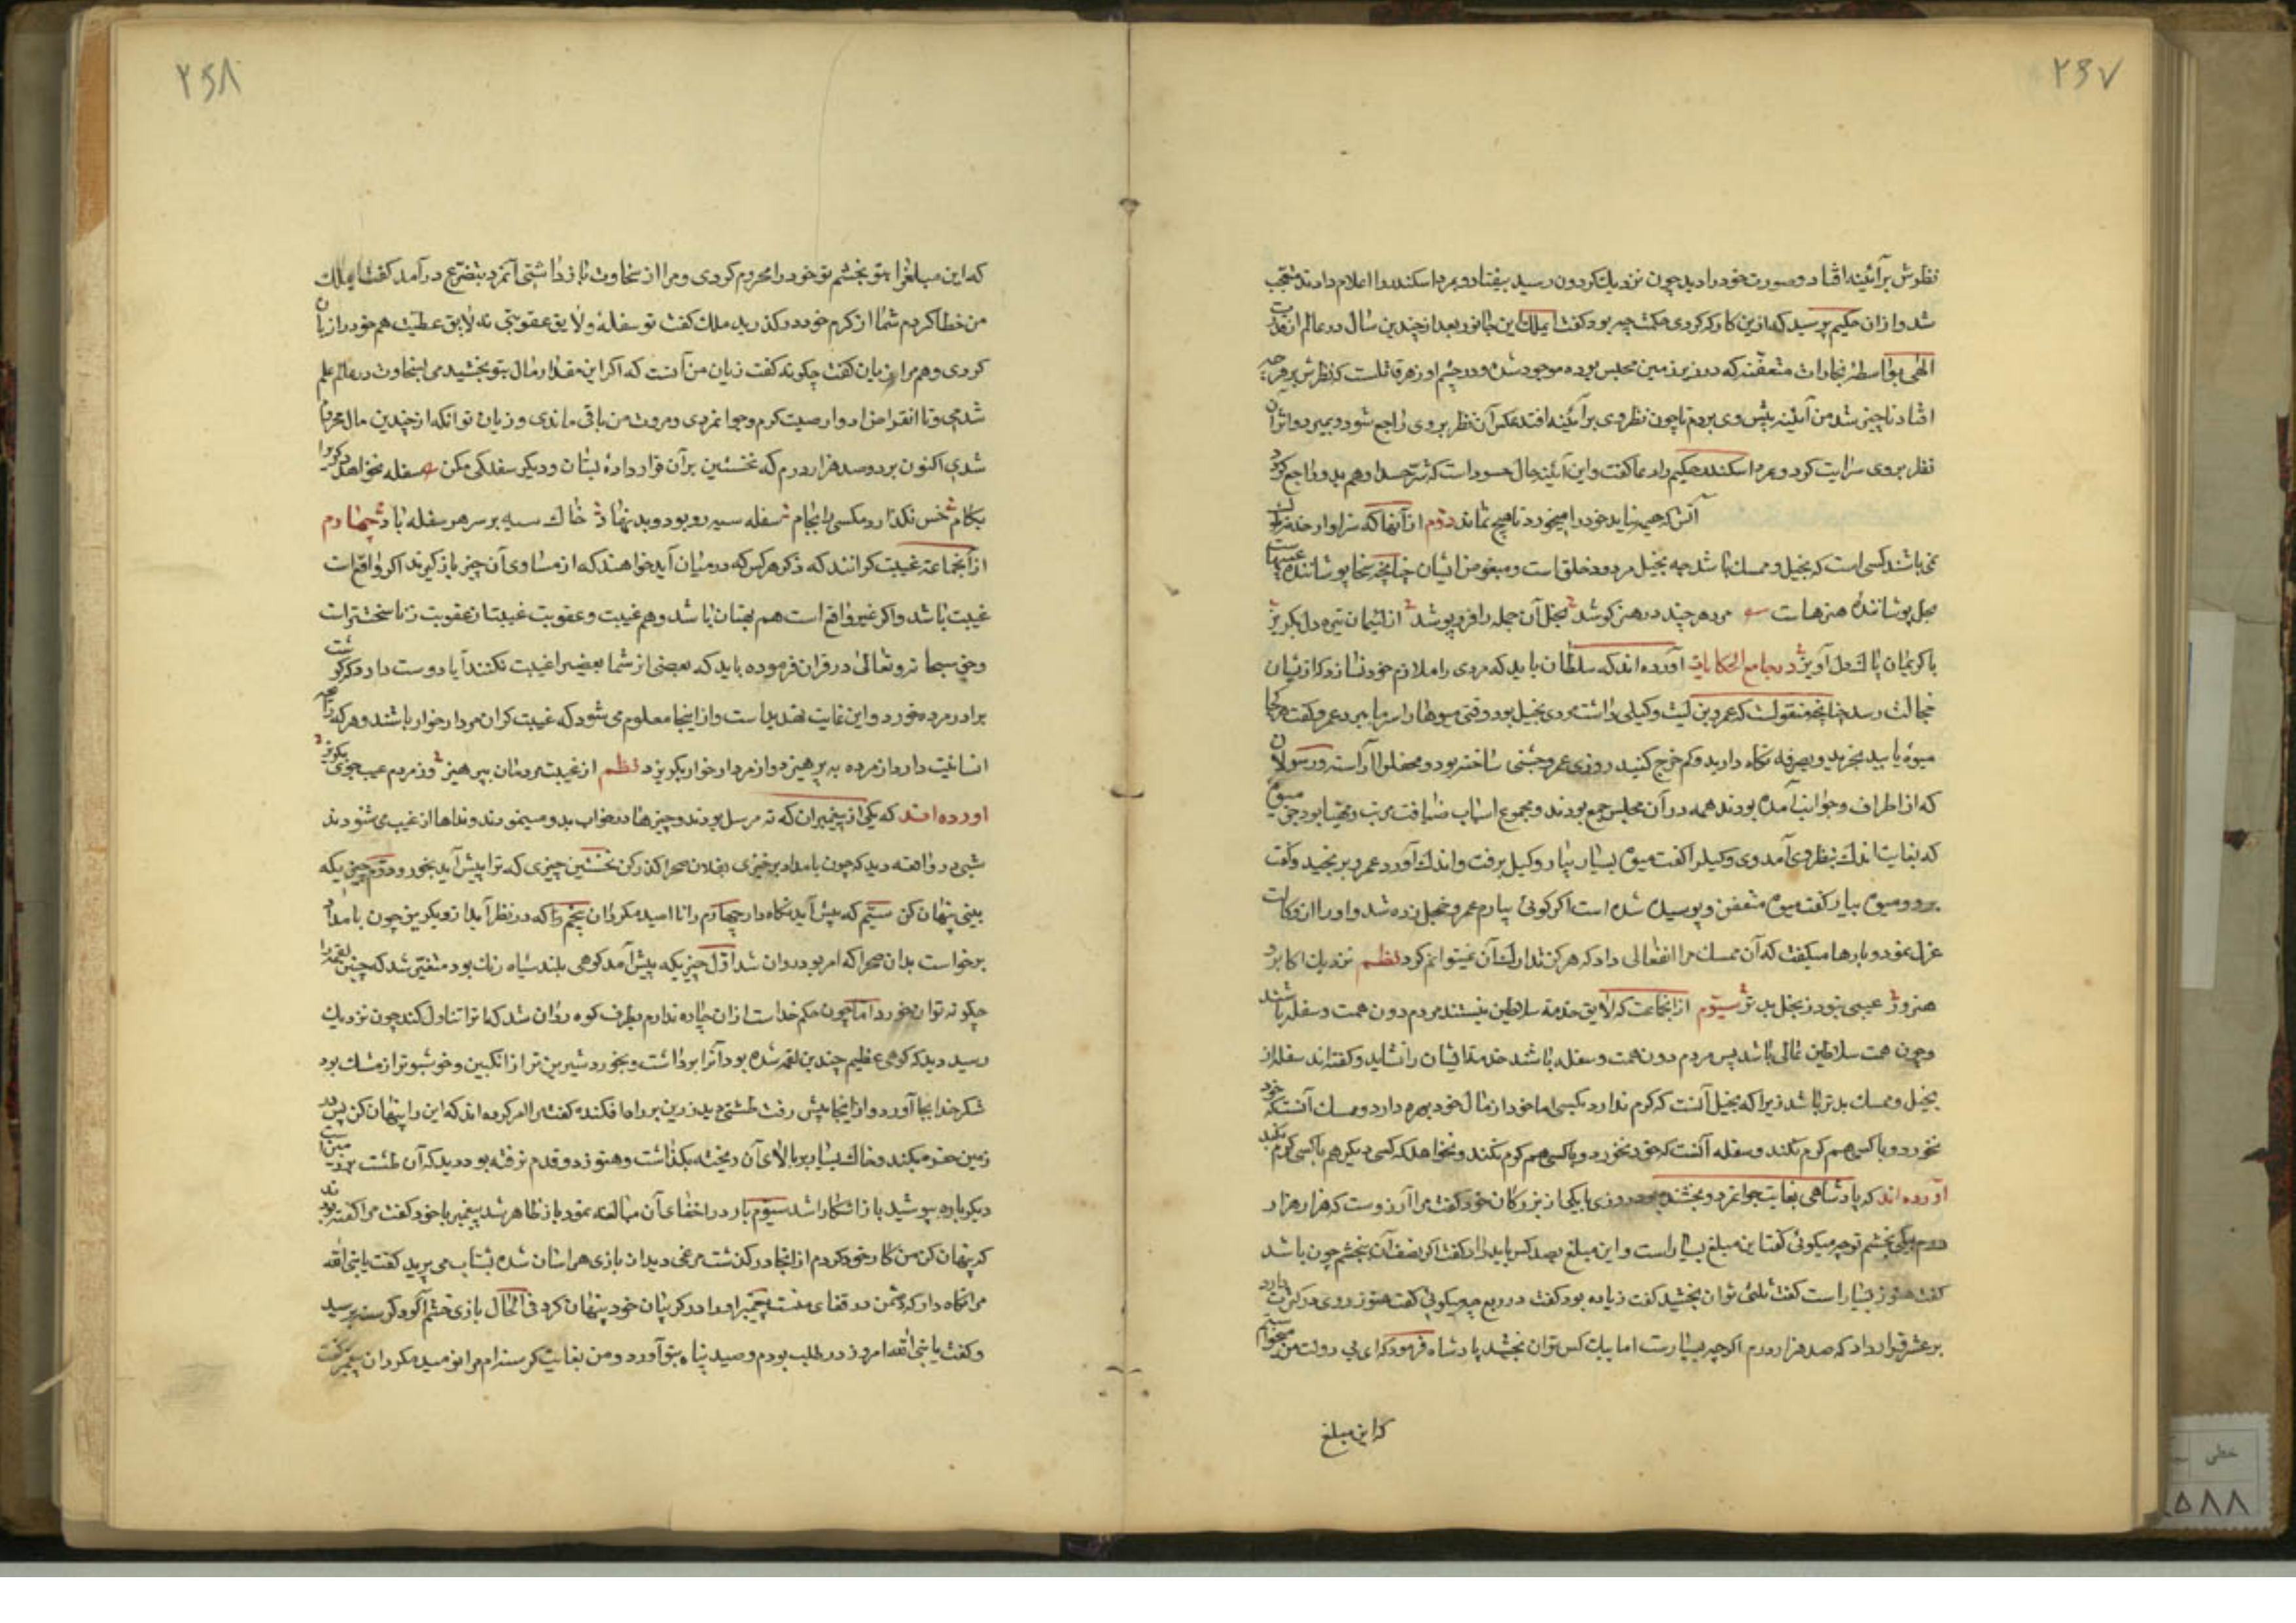 ۲۶۷
نظرش بر آئینه افتاد و صورت خود را دید چون نزدیک کردون رسید بیفتاد و بمرد اسکندر را اعلام دادند متعجب
شد و از ان حکیم پرسید که ازین کار که کردی حکمت چه بود کفت ایملک این جانور بعد از چندین سال در عالم از قدرت
الهی بواسطهٔ بخارات متعفنه که در زیر زمین محبس بوده موجود شده و در چشم او زهر قاتلست که نظرش بر هر چه
افتاد ناچیز شد من آئینه پیش وی بردم تا چون نظر وی بر آئینه افتد عکس آن نظر بر وی راجع شود و بمیرد و اثر آن
نظر بروی سرایت کرد و بمرد اسکندر حکیم را دعا کفت و این آئینه حال حسود است که شر حسد او هم بدو راجع کردد
آتش که هیمه نیابد خود را میخورد تا هیچ نماند دوم از آنها که سزاوار خدمت
نمی باشند کسی است که بخیل و ممسک باشد چه بخیل مردود خلق است و مبغوض ایشان چنانچه سخا پوشانندهٔ عیبهاست
بخل پوشانندهٔ هنرهاست مرد هر چند در هنر کوشد بخل آن جمله را فرو پوشد از لئیمان تیره دل بکریز
با کریمان پاک دل آویز در جامع الحکایات آورده اند که سلطان باید که مردی را ملازم خود نسازد که از ایشان
خجالت رسد چنانچه منقولست که عمرو بن لیث وکیلی داشت مردی بخیل بود وقتی میوها را سرما ببرد عمرو کفت هر کجا
میوه یابید بخرید و بصرفه نکاه دارید و کم خرج کنید روزی عمرو جشنی ساخته بود و محفلی آراسته و رسولان
که از اطراف و جوانب آمده بودند همه در آن مجلس جمع بودند و مجموع اسباب ضیافت مرتب و مهیا بود جز میوه
که بغایت اندک بنظر وی آمد وی وکیل را کفت میوه بسیار بیار وکیل برفت و اندک آورد عمرو برنجید و کفت
برو و میوه بیار کفت میوه متعفن و پوسیده شده است اکر کوئی بیارم عمرو خجل زده شد و او را از وکالت
عزل نمود و بارها میکفت که آن ممسک مرا انفعالی داد که هرکز تدارک آن نمیتوانم کرد نظم نزدیک اکابر
هنرور عیبی نبود ز بخل بدتر سیوم از انجماعت که لایق خدمت سلاطین نیستند مردم دون همت و سفله باشند
و چون همت سلاطین عالی باشد پس مردم دون همت و سفله باشند خدمت ایشان را نشاید و کفته اند سفله از
بخیل و ممسک بدتر باشد زیرا که بخیل آنست که کرم ندارد بکسی اما خود از مال خود بهره دارد و ممسک آنستکه خود
نخورد و با کس هم کرم نکند و سفله آنست که خود نخورد و با کسی هم کرم نکند و نخواهد که کسی دیکر هم با کسی کرم بکند
آورده اند که پادشاهی بغایت جوانمرد و بخشنده بود روزی با یکی از بزرکان خود کفت مرا آرزوست که هزار هزار
درم بیکی بخشم تو چه میکوئی کفت این مبلغ بسیار است و این مبلغ بصد کس باید داد کفت اکر نصف آن بخشم چون باشد
کفت هنوز بسیار است کفت ثلثی توان بخشید کفت زیاده بود کفت در ربع چه میکوئی کفت هنوز روی در کثرت دارد
بر عشر قرار داد که صد هزار درم اکرچه بسیارست اما بیک کس توان بخشید پادشاه فرمود که ای بی دولت من میخواستم
که این مبلغ
۲۶۸
که این مبلغ را بتو بخشم تو خود را محروم کردی و مرا از سخاوت باز داشتی آنمرد بتضرع در آمد کفت ایملک
من خطا کردم شما از کرم خود در کذرید ملک کفت تو سفلهٔ و لایق عقوبتی نه لایق عطیت هم خود را زیان
کردی و هم مرا زیان کفت چکونه کفت زیان من آنست که اکر این مقدار مال بتو بخشیدمی بسخاوت در عالم علم
شدمی و تا انقراض ادوار صیت کرم و جوانمردی و مروت من باقی ماندی و زیان تو انکه از چندین مال محروم
شدی اکنون برو صد هزار درم که نخستین بر آن قرار دادهٔ بستان و دیکر سفلکی مکن سفله نخواهد دیکری را
بکام خس نکذارد مکسی را بجام سفله سیه رو بود و بد نهاد خاک سیه بر سر هر سفله باد چهارم
از آنجماعة غیبت کرانند که ذکر هر کس که در میان آید خواهند که از مساوی آن چیز باز کیرند اکر واقع است
غیبت باشد و اکر غیر واقع است هم بهتان باشد و هم غیبت و عقوبت غیبت از عقوبت زنا سختتر است
و حق سبحانه و تعالی در قران فرموده باید که بعضی از شما بعضی را غیبت نکنند آیا دوست دارد که کوشت
برادر مرده خورد و این غایت تهدید است و از اینجا معلوم می شود که غیبت کران مردار خوار باشند و هر که را
انسانیت دارد از مرده به پرهیزد و از مردار خوار بکریزد نظم از غیبت مردمان بپرهیز وز مردم عیب جوی بکریز
اورده اند که یکی از پیغمبران که نه مرسل بودند و چیزها در خواب بدو مینمودند و نداها از غیب می شنودند
شبی در واقعه دید که چون بامداد برخیزی بفلان صحرا کذر کن نخستین چیزی که ترا پیش آید بخور و دوم چیزیکه
بینی پنهان کن سیم که پیش آید نکاه دار چهارم را نا امید مکردان پنجم را که در نظر آید ازو بکریز چون بامداد
برخواست بدان صحرا که امر بود روان شد اول چیزیکه پیش آمد کوهی بلند سیاه رنک بود متحیر شد که چنین لقمه را
چکونه توان خورد اما چون حکم خداست از ان چاره ندارم بطرف کوه روان شد که ترا تناول کند چون نزدیک
رسید دید که کوهی عظیم چندین لقمه شده بود آنرا برداشت و بخورد شیرین تر از انکبین و خوشبوتر از مشک بود
شکر خدا بجا آورد و از اینجا پیش رفت طشتی دید زرین بر راه افکنده کفت مرا امر کرده اند که این را پنهان کن پس در
زمین حفر میکند و خاک بسیار بر بالای آن ریخته بکذاشت و هنوز دو قدم نرفته بود دید که آن طشت بر روی زمین است
دیکر باره بپوشید باز اشکارا شد سیوم بار در اخفای آن مبالغه نمود باز ظاهر شد پیغمبر با خود کفت مرا کفته بودند
که پنهان کن من کار خود کردم از انجا در کذشت مرغی دید از بازی هراسان شده بشتاب می پرید کفت یا نبی الله
مرا نکاه دار که دشمن در قفای منست پیغمبر او را در کریبان خود پنهان کرد فی الحال بازی خشم آلود کرسنه برسید
و کفت یا نبی الله امروز در طلب بودم و صید پناه بتو آورد و من بغایت کرسنه ام مرا نومید مکردان پیغمبر کفت
خطی